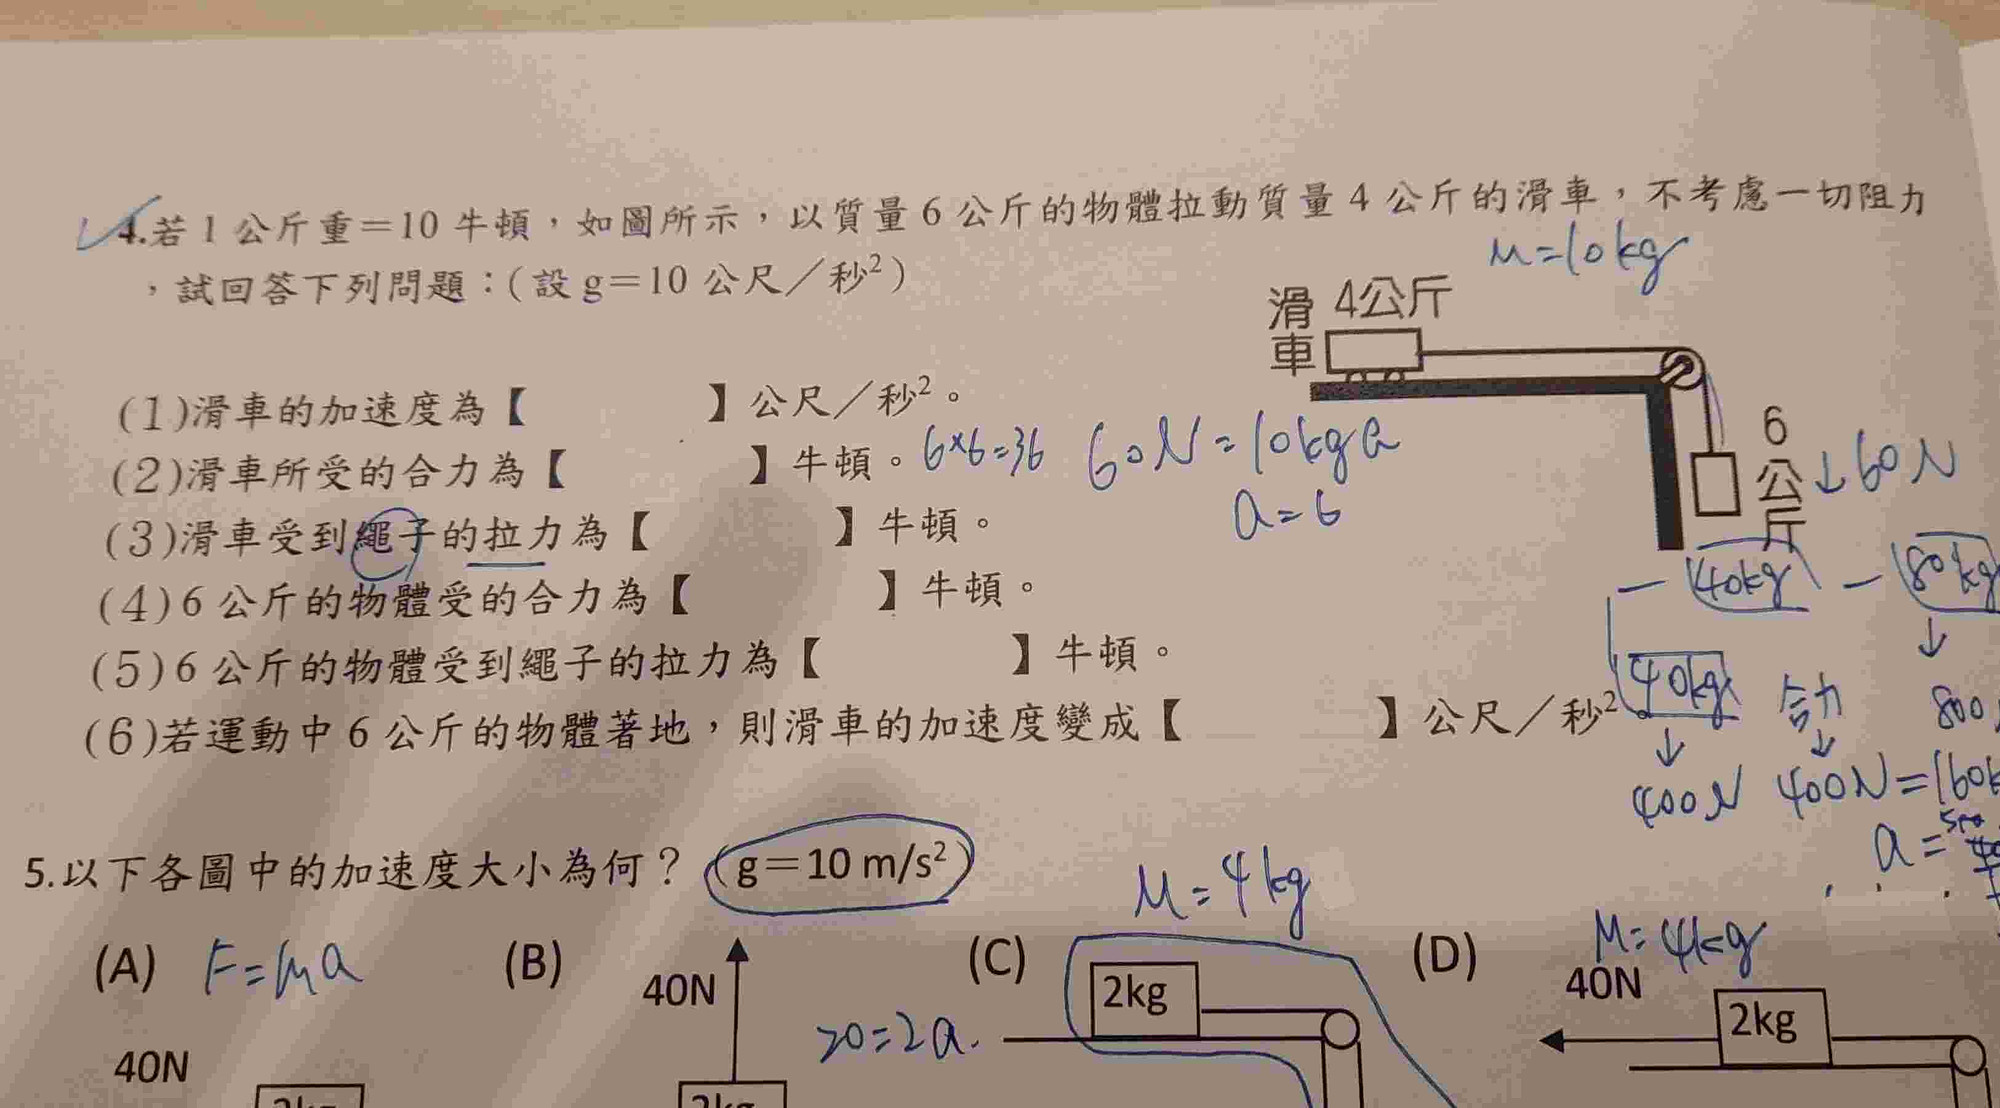 4.若1公斤重=10牛頓,如圖所示,以質量6公斤的物體拉動質量4公斤的滑車,不考慮一切阻力
,試回答下列問題:(設g=10公尺/秒²)
M=10kg
滑車 4公斤
(1)滑車的加速度為【 】公尺/秒²。
(2)滑車所受的合力為【 】牛頓。
6×6=36 60N=10kg a
a=6
6公斤 ↓60N
(3)滑車受到繩子的拉力為【 】牛頓。
(4)6公斤的物體受的合力為【 】牛頓。
40kg 80kg
(5)6公斤的物體受到繩子的拉力為【 】牛頓。
(6)若運動中6公斤的物體著地,則滑車的加速度變成【 】公尺/秒²
40kg 合力 800
400N 400N=160k
a=
5.以下各圖中的加速度大小為何?(g=10 m/s²)
M=4kg
M=4kg
(A) F=ma (B) (C) (D)
40N 2kg 40N 2kg
20=2a.
40N
2kg 2kg